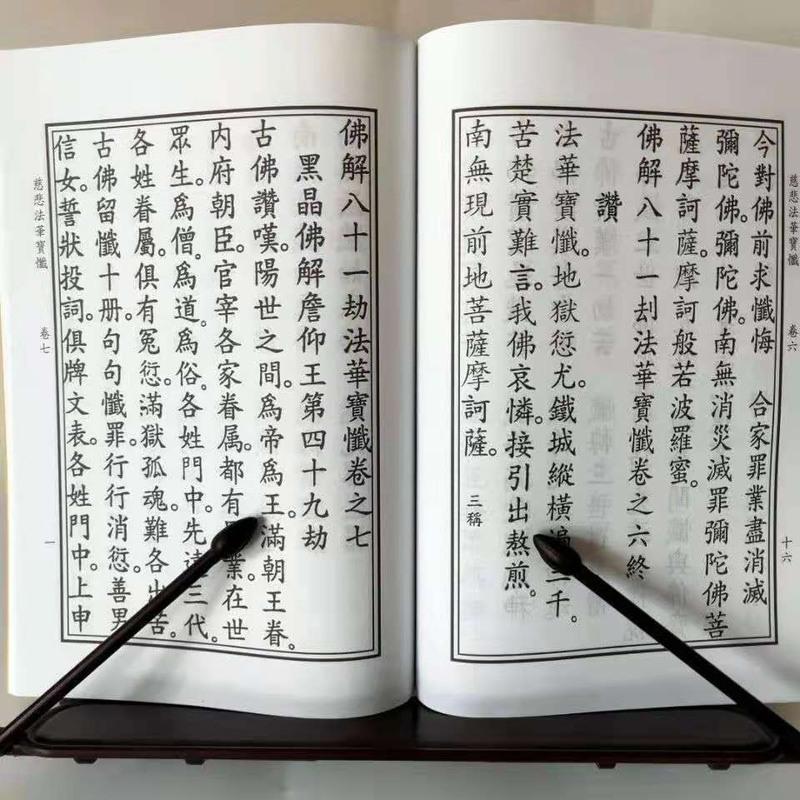 慈悲法華寶懺　卷六　十六
今對佛前求懺悔　合家罪業盡消滅
彌陀佛。彌陀佛。南無消災滅罪彌陀佛菩
薩摩訶薩。摩訶般若波羅蜜。
佛解八十一刦法華寶懺卷之六終
讚
法華寶懺。地獄愆尤。鐵城縱橫三千。
苦楚實難言。我佛哀憐。接引出熬煎。
南無現前地菩薩摩訶薩。三稱
佛解八十一劫法華寶懺卷之七
黑晶佛解詹仰王第四十九劫
古佛讚嘆。陽世之間。爲帝爲王。滿朝王眷。
内府朝臣。官宰各家眷属。都有業。在世
眾生。爲僧。爲道。爲俗。各姓門中。先遠三代。
各姓眷屬。俱有冤愆。滿獄孤魂。難各出苦。
古佛留懺十册。句句懺罪。行行消愆。善男
信女。誓狀投詞。俱牌文表。各姓門中。上申
慈悲法華寶懺　卷七　一